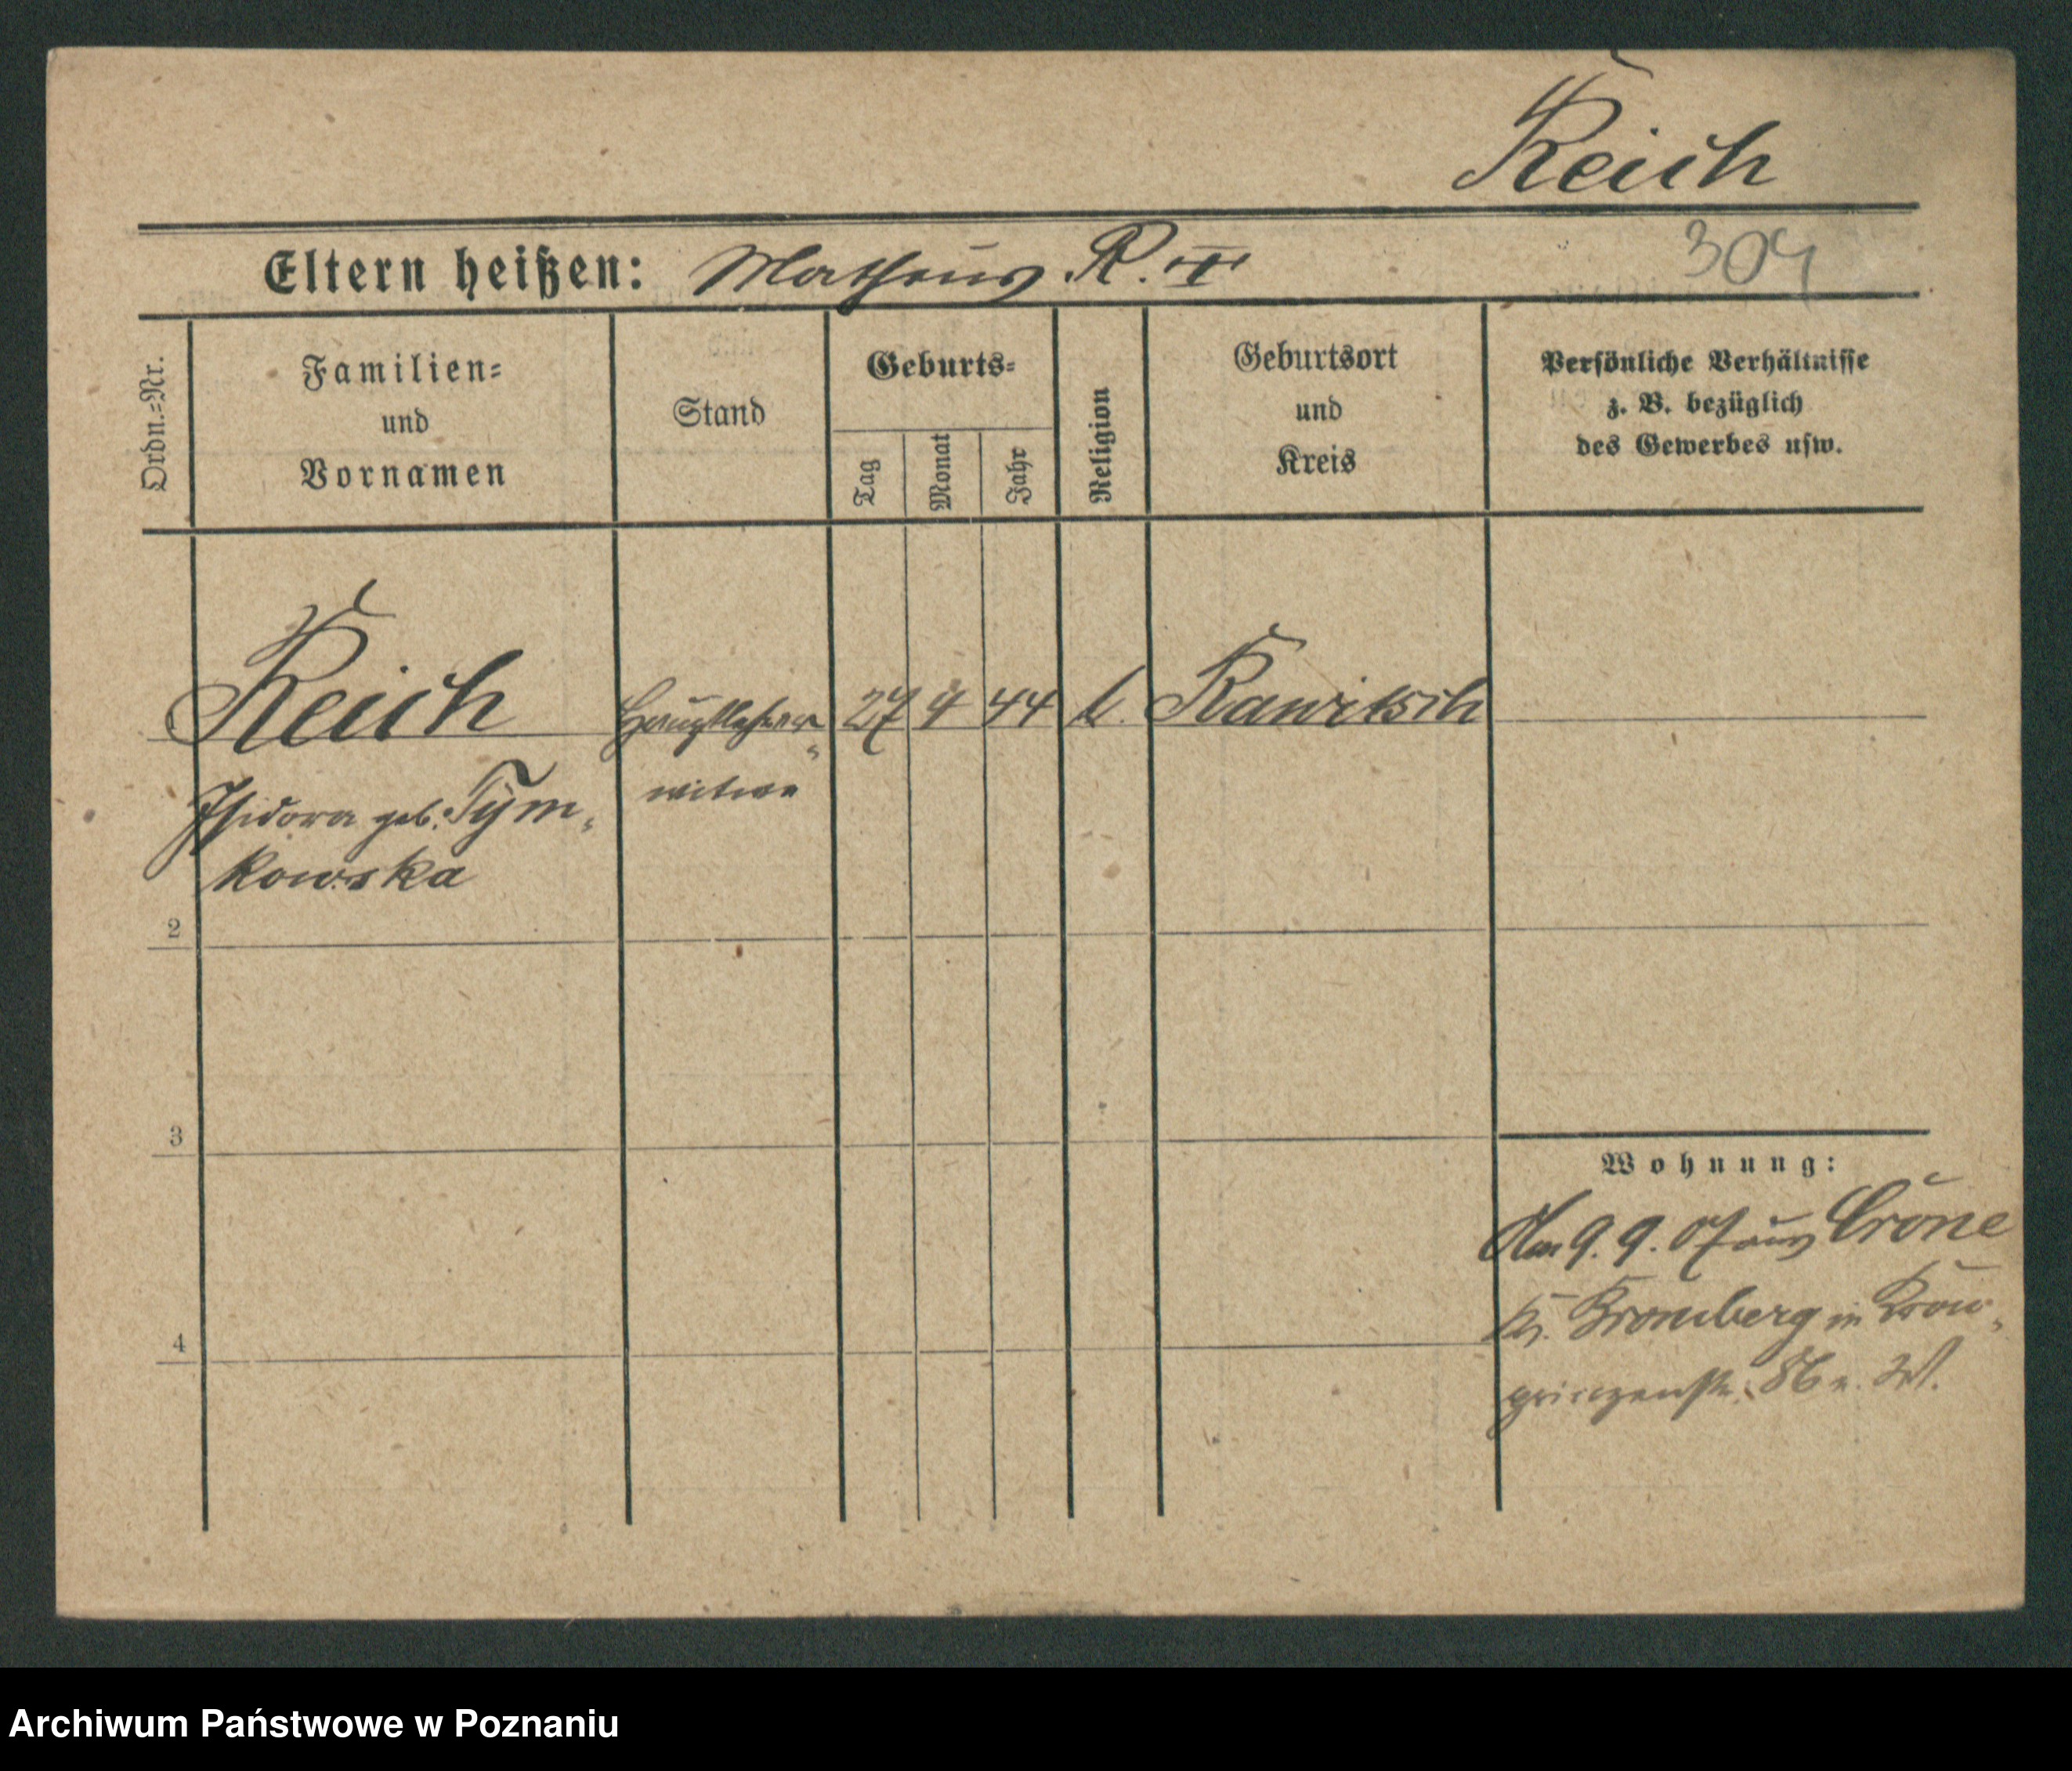 Reich
304
Eltern heißen: Matheus R. III
Ordn.=Nr.
Familien=
und
Vornamen
Stand
Geburts=
Tag
Monat
Jahr
Religion
Geburtsort
und
Kreis
Persönliche Verhältnisse
z. B. bezüglich
des Gewerbes usw.
Reich Hauptlehrer 27 4 44 k. Rawitsch
witwe
Isidora geb. Tym-
kowska
2
3
4
Wohnung:
Am 9. 9. 07 aus Crone
Kr. Bromberg in Kron-
prinzenstr. 86
Archiwum Państwowe w Poznaniu